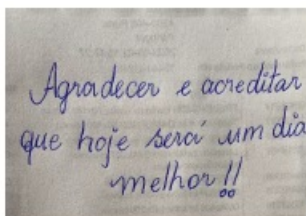 Agradecer e acreditar
que hoje será um dia
melhor!!